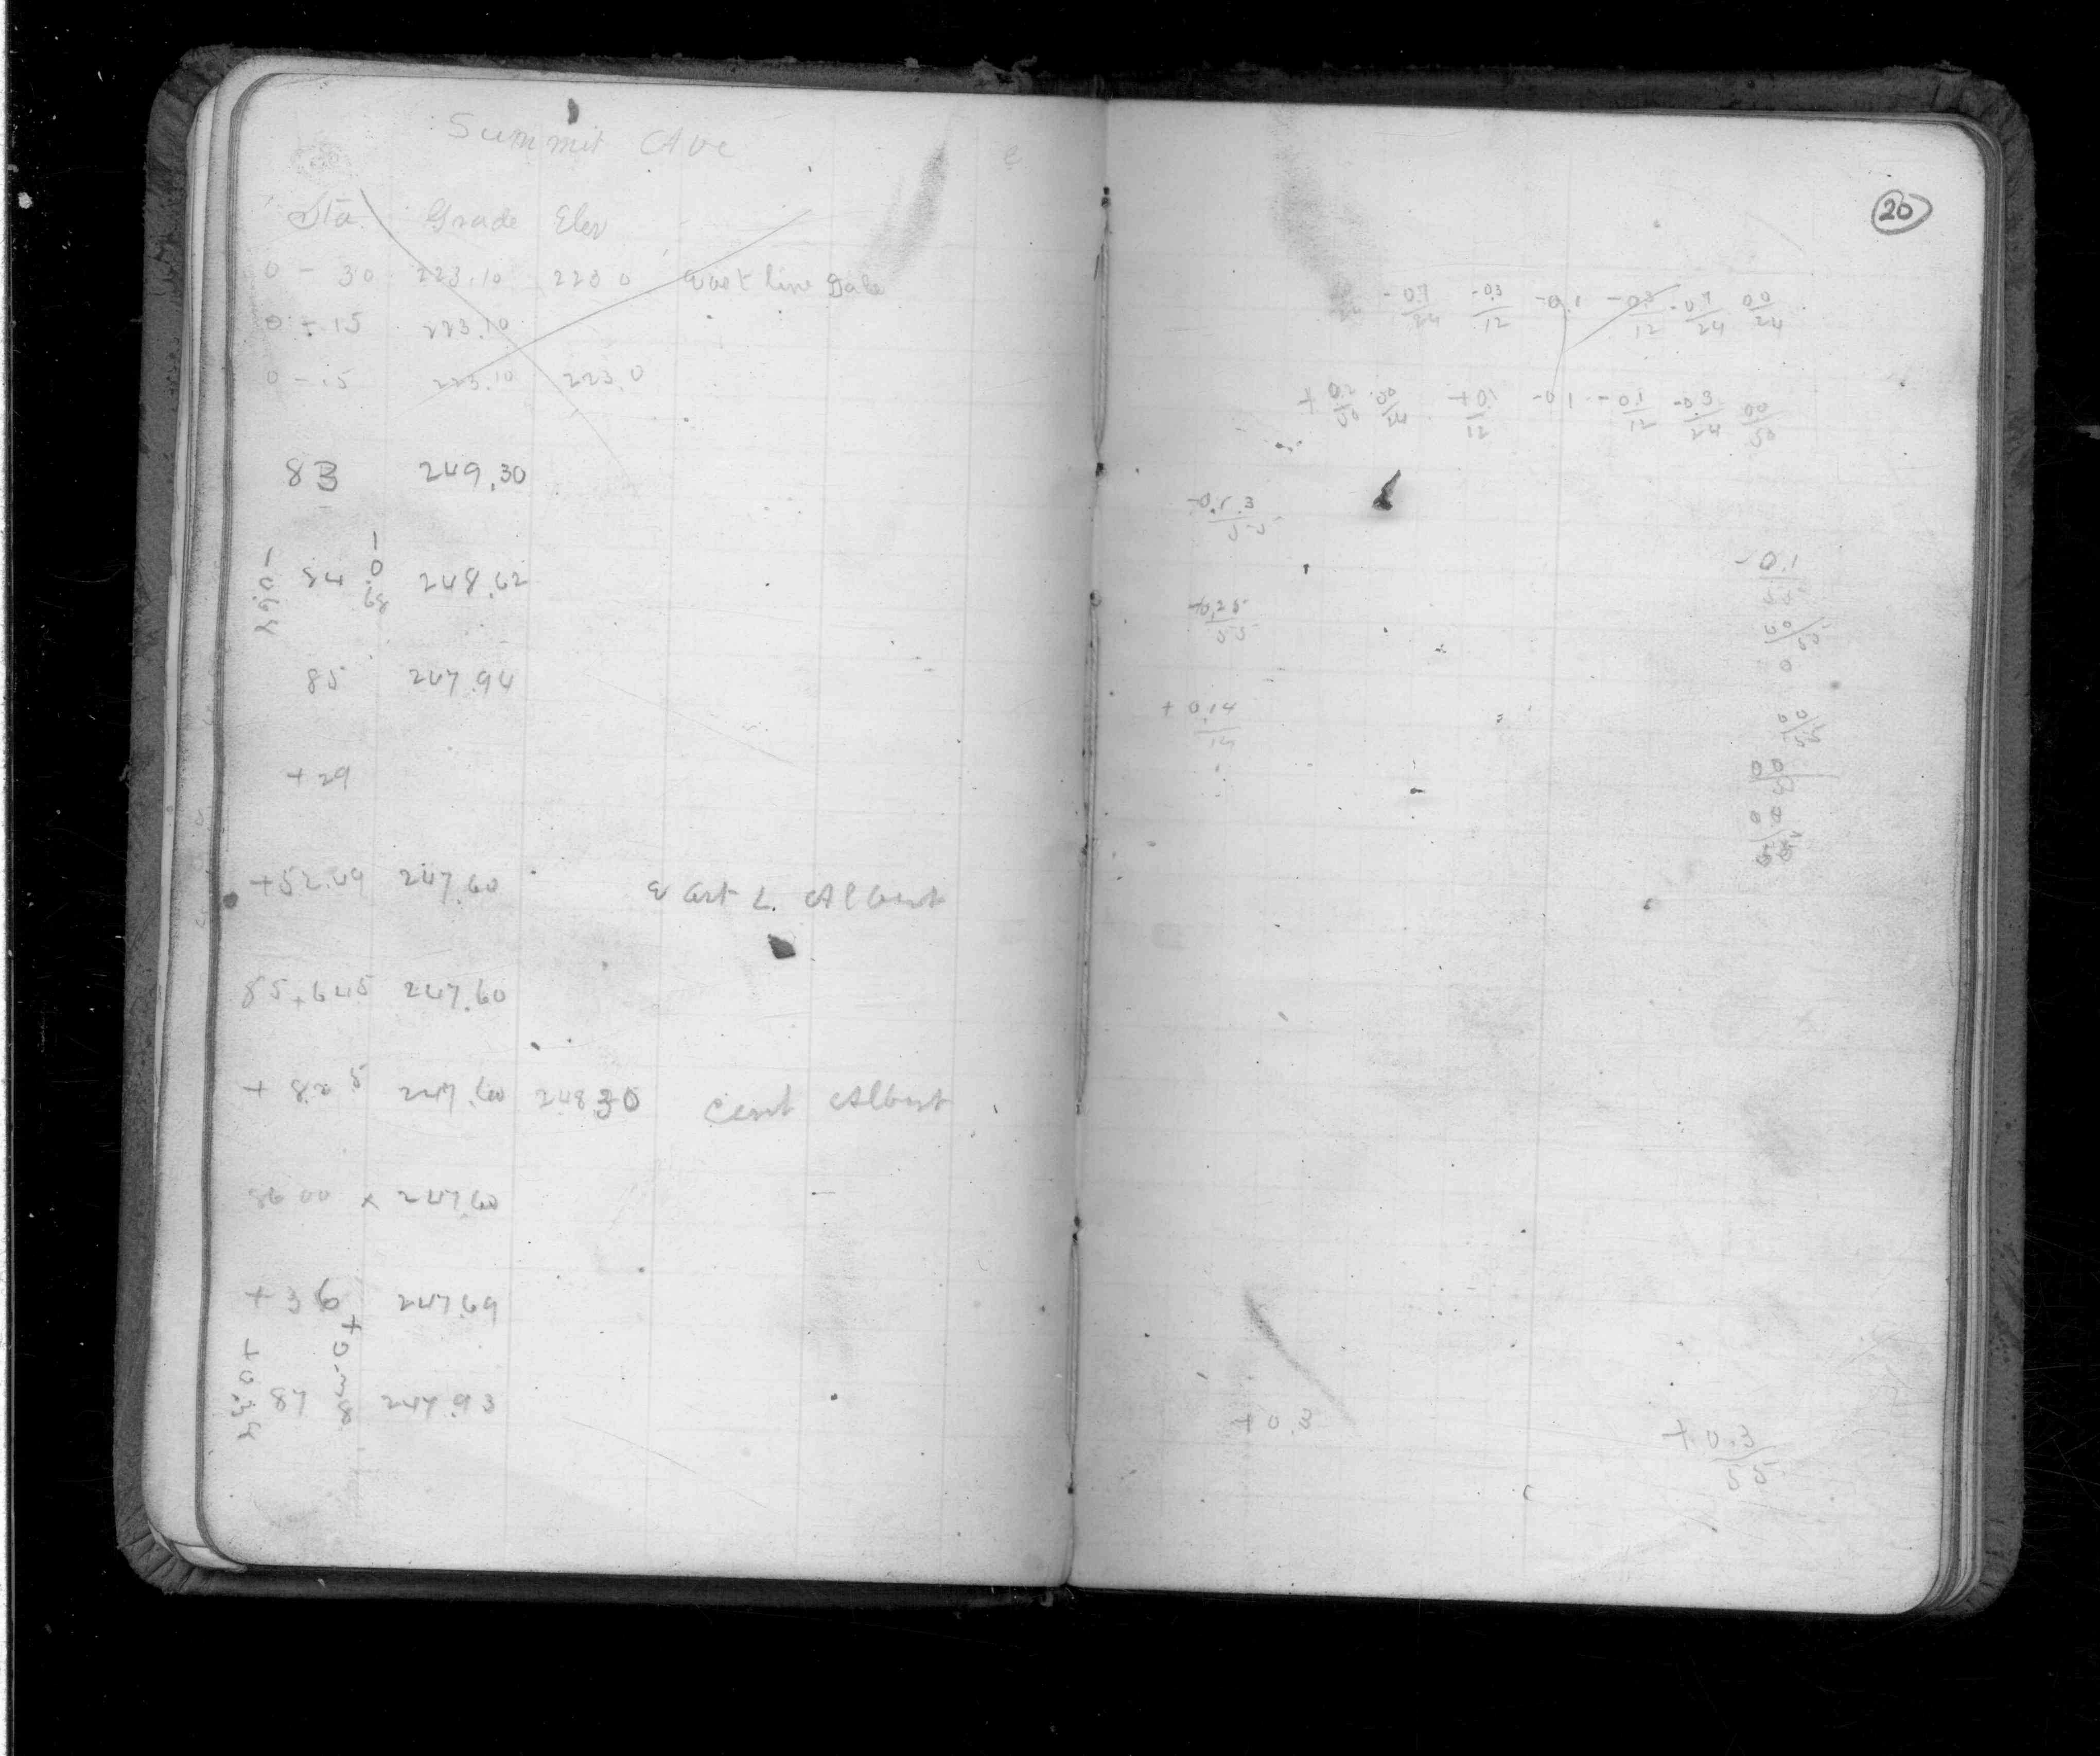 Summit Ave
Sta Grade Elev
0 - 30 223.10 223 0 west line Dale
0 + 15 223.10
0 - 15 223.10 223.0
83 249.30
-0.64 84 -0.68 248.62
85 247.94
+ 29
+52.49 247.60 East L. Albert
85+645 247.60
+ 82 5 247.60 248.30 Cent Albert
86 00 x 247.60
+ 36 247.69
+0.34 87 +0.38 247.93
20
-0.7/24 -0.3/12 -0.1 -0.3/12 -0.7/24 00/24
+0.2/50 .00/24 +0.1/12 -0.1 -0.1/12 -0.3/24 00/50
-0.1
00/50
0
+0.14/12
+0.3
+0.3/55